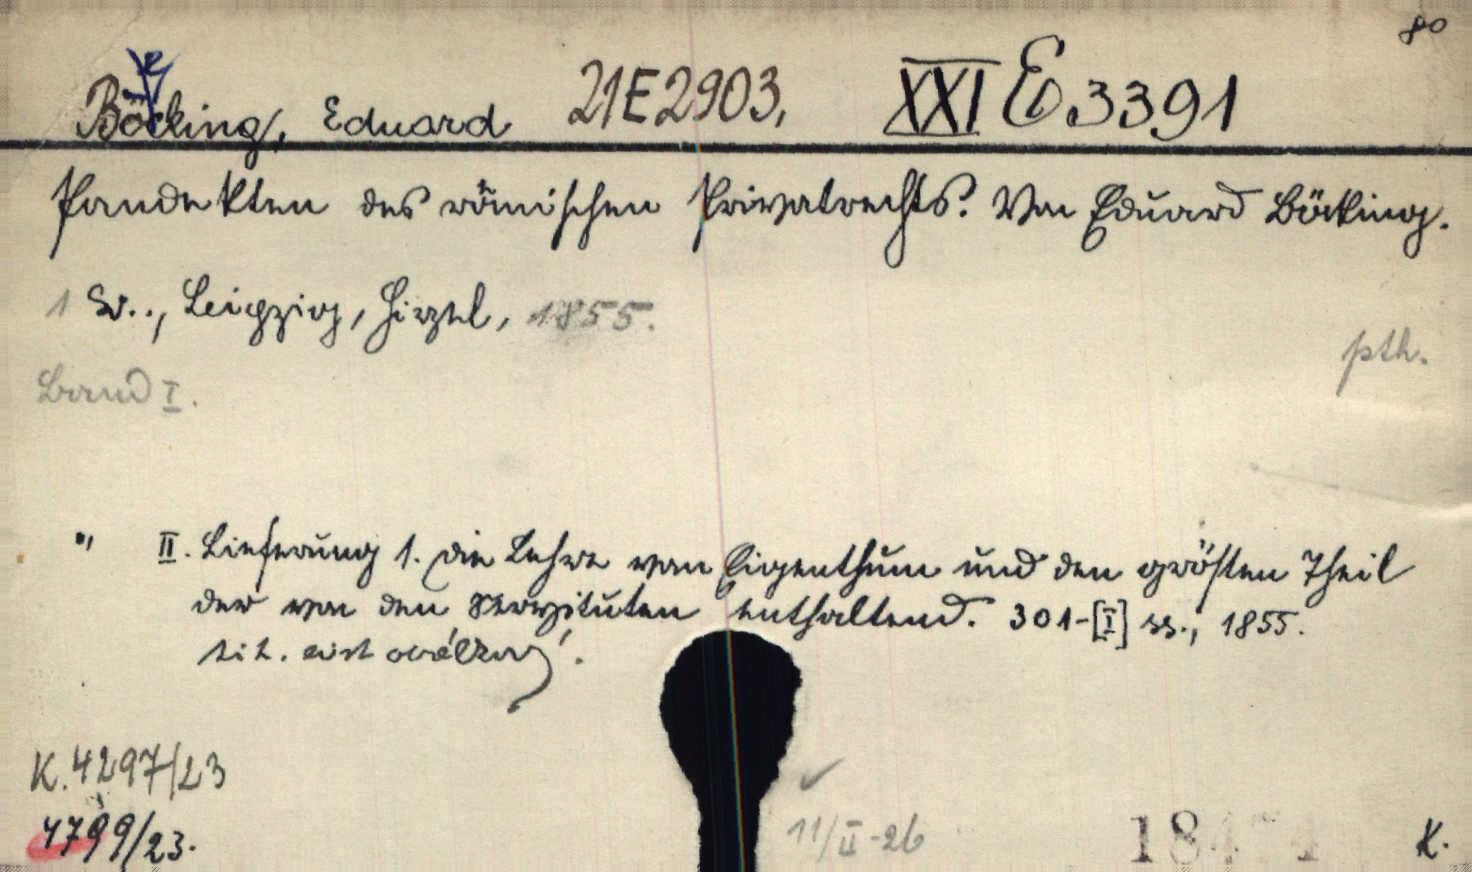 80
Böcking, Eduard 21E2903, XXI E 3391
e
Pandekten des römischen Privatrechts. Von Eduard Böcking.
1 Bd.., Leipzig, Hirzel, 1855.
pth.
Band I.
" II. Lieferung 1. die Lehre vom Eigenthum und den grösten Theil
der von den Servituten enthaltend. 301-[I] ss., 1855.
tit.
K. 4297/23
4799/23.
11/II-26
K.